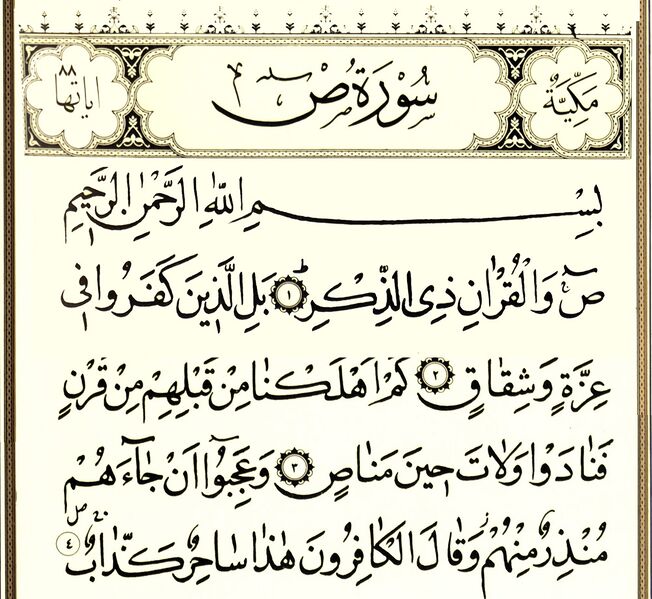 مَكِّيَّةٌ سُورَةُ صۤ اٰيَاتُهَا ٨٨
بِسْمِ اللّٰهِ الرَّحْمٰنِ الرَّحٖيمِ
صۤ وَالْقُرْاٰنِ ذِى الذِّكْرِؕ ١ بَلِ الَّذٖينَ كَفَرُوا فٖى
عِزَّةٍ وَشِقَاقٍ ٢ كَمْ اَهْلَكْنَا مِنْ قَبْلِهِمْ مِنْ قَرْنٍ
فَنَادَوْا وَلَاتَ حٖينَ مَنَاصٍ ٣ وَعَجِبُٓوا اَنْ جَٓاءَهُمْ
مُنْذِرٌ مِنْهُمْؗ وَقَالَ الْكَافِرُونَ هٰذَا سَاحِرٌ كَذَّابٌۚۖ ٤